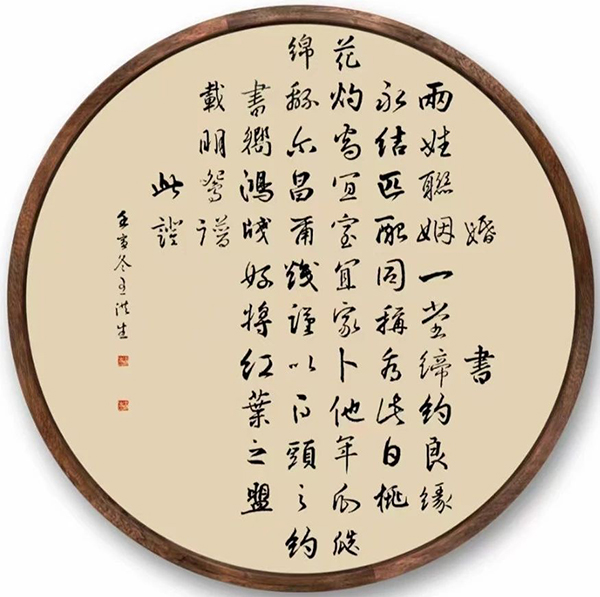 婚書
兩姓聯姻一堂締約良緣
永結匹配同稱看此日桃
花灼灼宜室宜家卜他年瓜瓞
綿綿尔昌爾熾謹以白頭之約
書嚮鴻牋好將紅葉之盟
載明鴛譜
此證
亥冬王洪生